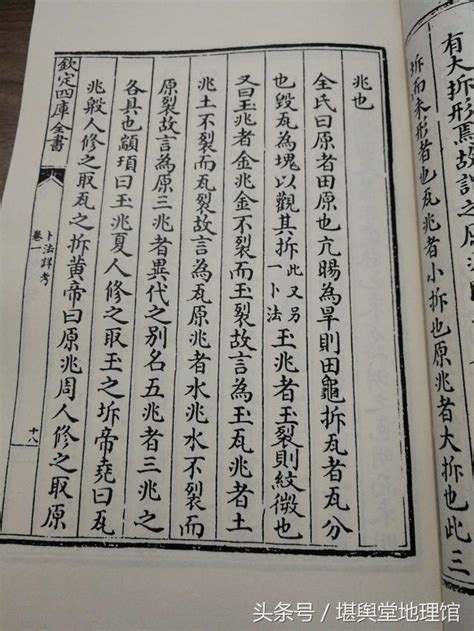 有大拆形焉故謂之原
坼而未形者也瓦兆者小拆也原兆者大拆也此三
兆也
全氏曰原者田原也亢暘為旱則田龜拆瓦者瓦分
也毀瓦為塊以觀其拆此又另一卜法玉兆者玉裂則紋微也
又曰玉兆者金兆金不裂而玉裂故言為玉瓦兆者土
兆土不裂而瓦裂故言為瓦原兆者水兆水不裂而
原裂故言為原三兆者異代之別名五兆者三兆之
各具也顓頊曰玉兆夏人修之取玉之坼帝堯曰瓦
兆殷人修之取瓦之拆黄帝曰原兆周人修之取原
欽定四庫全書
卜法詳考
卷一
十八
头条号/堪舆堂地理馆